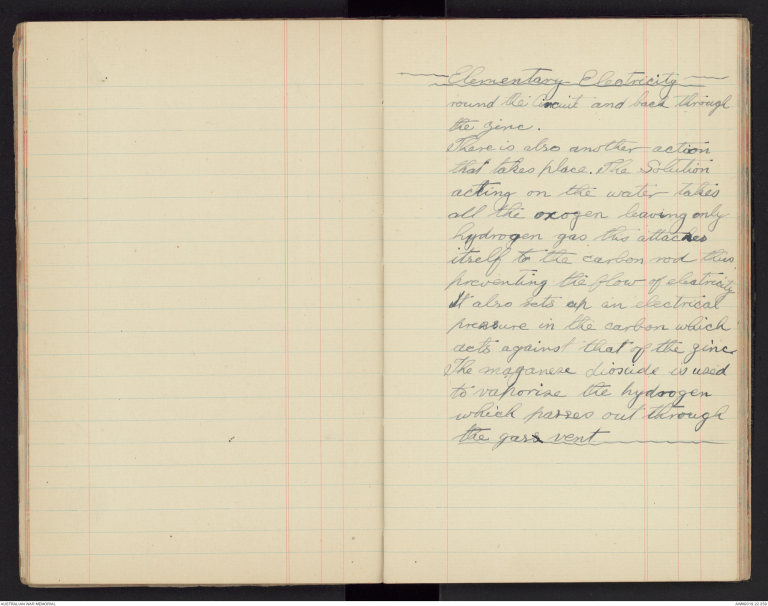 Elementary Electricity
round the Circuit and back through
the zinc.
There is also another action
that takes place. The Solution
acting on the water takes
all the oxogen leaving only
hydrogen gas this attaches
itself to the carbon rod thus
preventing the flow of electricity
It also sets up an electrical
pressure in the carbon which
acts against that of the zinc
The maganese dioxide is used
to vaporise the hydrogen
which passes out through
the gass vent
AUSTRALIAN WAR MEMORIAL